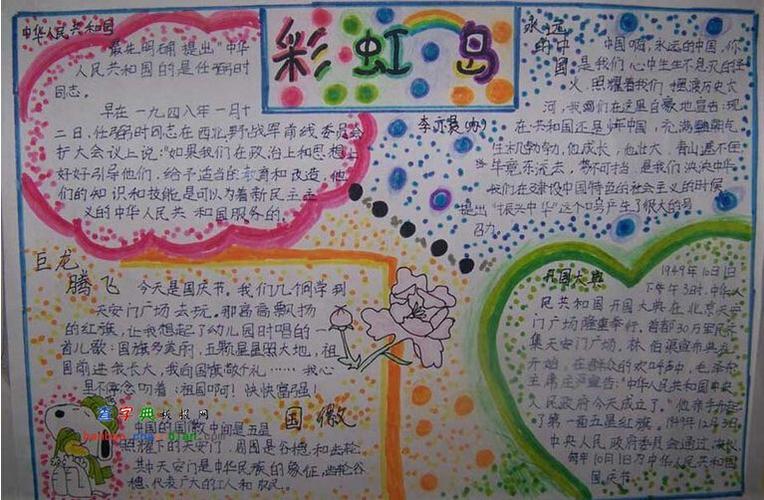 彩虹岛
李亦晨(办)
中华人民共和国
最先明确提出"中华
人民共和国的是任弼时
同志。
早在一九四八年一月十
二日,任弼时同志在西北野战军前线委员会
扩大会议上说:"如果我们在政治上和思想上
好好引导他们,给予适当的教育和改造,他
们的知识和技能是可以为着新民主主
义的中华人民共和国服务的
永远
的中
国
中国啊,永远的中国,你
是我们心中生生不息灭的
火,照耀着我们
河,我们在这里自豪地宣告:现
在共和国还是
生机勃勃,他成长,他壮大,青山遮不住
毕竟东流去,势不可挡,是我们泱泱中华
我们在建设中国特色的社会主义的时候
提出"振兴中华"这个口号产生了很大的号
召力。
巨龙
腾飞
今天是国庆节。我们几个同学到
天安门广场去玩。那高高飘扬
的红旗,让我想起了幼儿园时唱的一
首儿歌:国旗多美丽,五颗星星照大地,祖
国前进我长大,我向国旗敬个礼……我心
里不停念叨着:祖国啊!快快富强!
国徽
中国的国徽中间是五星
照耀下的天安门,周围是谷穗和齿轮。
其中天安门是中华民族的象征,齿轮谷
穗、代表广大的工人和农民。
开国大典
1949年10月1日
下午3时,中华人
民共和国开国大典在北京天安
门广场隆重举行,首都30万军民
集天安门广场。林伯渠宣布典礼
开始,在群众的欢呼声中,毛泽东
主席庄严宣告:"中华人民共和国中央
人民政府今天成立了。"他亲手升起
了第一面五星红旗,1949年12月3日
中央人民政府委员会通过决议,
每年10月1日为中华人民共和国
国庆节